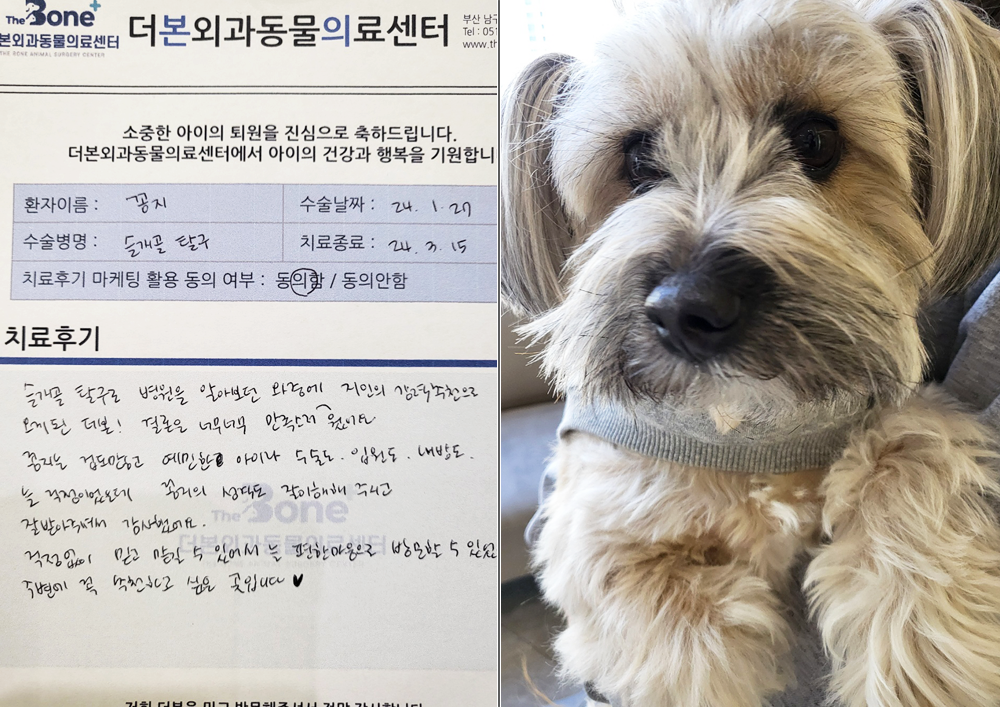 The Bone+
더본외과동물의료센터
THE BONE ANIMAL SURGERY CENTER
더본외과동물의료센터
부산 남구
Tel : 051
www.th
소중한 아이의 퇴원을 진심으로 축하드립니다.
더본외과동물의료센터에서 아이의 건강과 행복을 기원합니
환자이름 : 꽁지 수술날짜 : 24. 1. 27
수술병명 : 슬개골 탈구 치료종료 : 24. 3. 15
치료후기 마케팅 활용 동의 여부 : 동의함 / 동의안함
치료후기
슬개골 탈구로 병원을 알아보던 와중에 지인의 강력추천으로
오게된 더본! 결론은 너무너무 만족스러웠어요
꽁지는 겁도많고 예민한 아이라 수술도. 입원도. 내방도.
늘 걱정이었는데 꽁지의 성격도 잘이해해 주시고
잘받아주셔서 감사했어요.
걱정없이 믿고 맡길 수 있어서 늘 편한마음으로 방문할 수 있었
주변에 꼭 추천하고 싶은 곳입니다 ♥
The Bone
더본외과동물의료센터
저희 더본을 믿고 방문해주셔서 정말 감사합니다